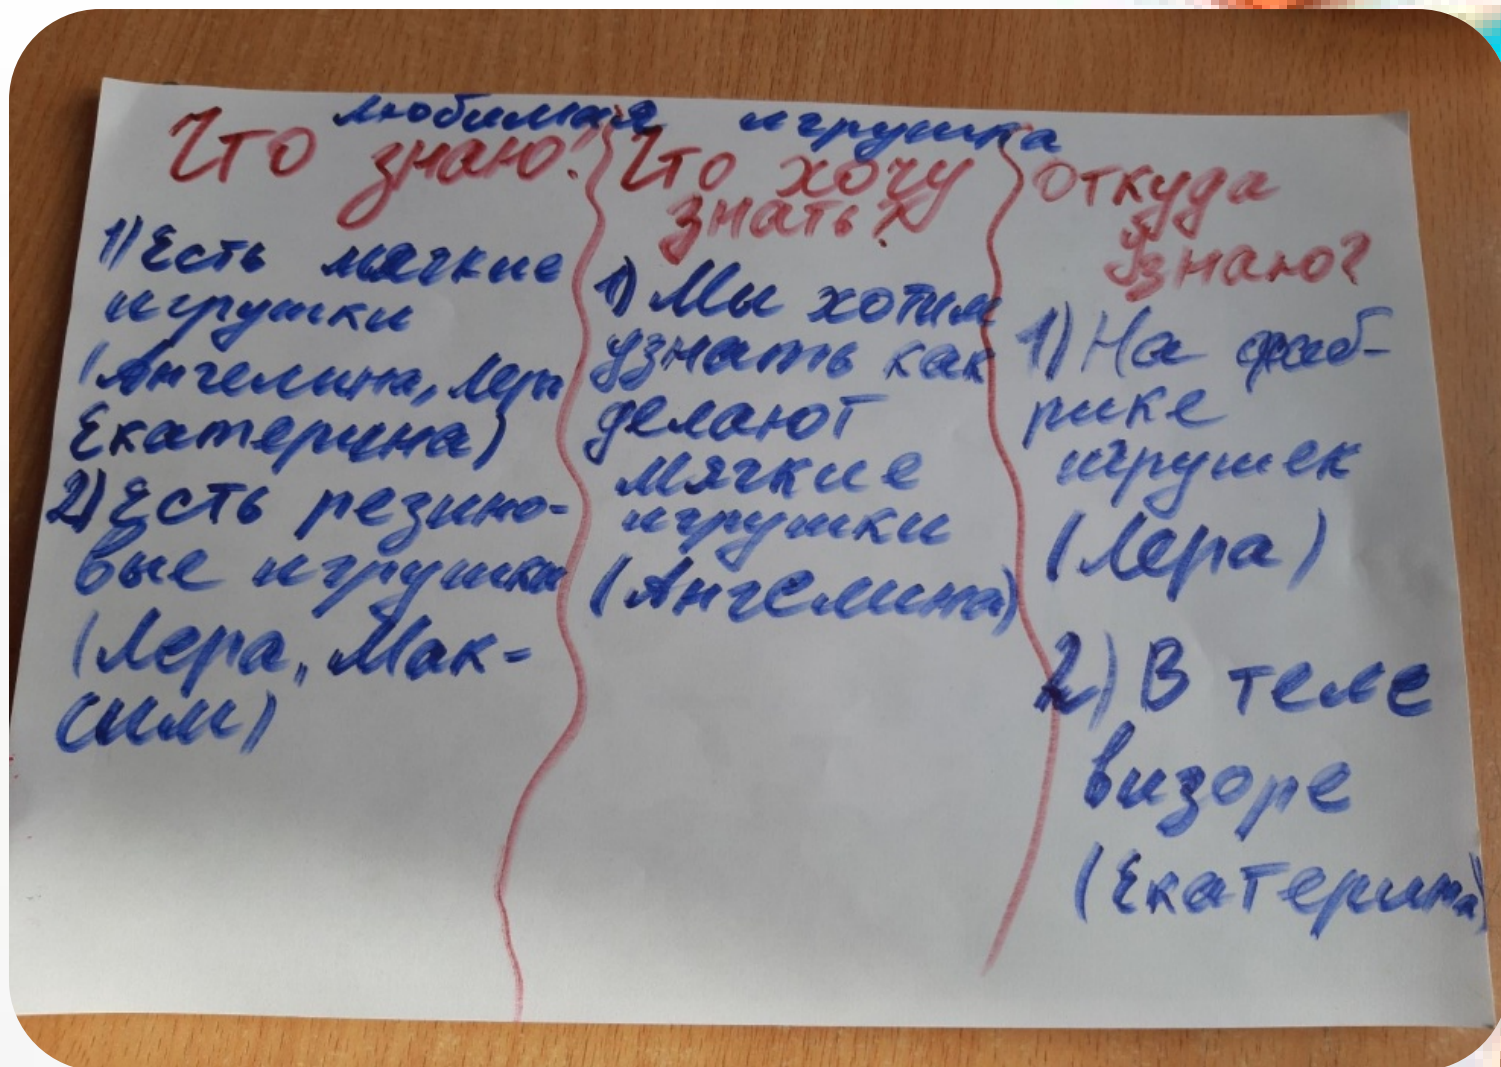 любимая игрушка
Что знаю?
1) Есть мягкие
игрушки
(Ангелина, Лера
Екатерина)
2) Есть резино-
вые игрушки
(Лера, Мак-
сим)
Что хочу
знать?
1) Мы хотим
узнать как
делают
мягкие
игрушки
(Ангелина)
Откуда
узнаю?
1) На фаб-
рике
игрушек
(Лера)
2) В теле
визоре
(Екатерина)